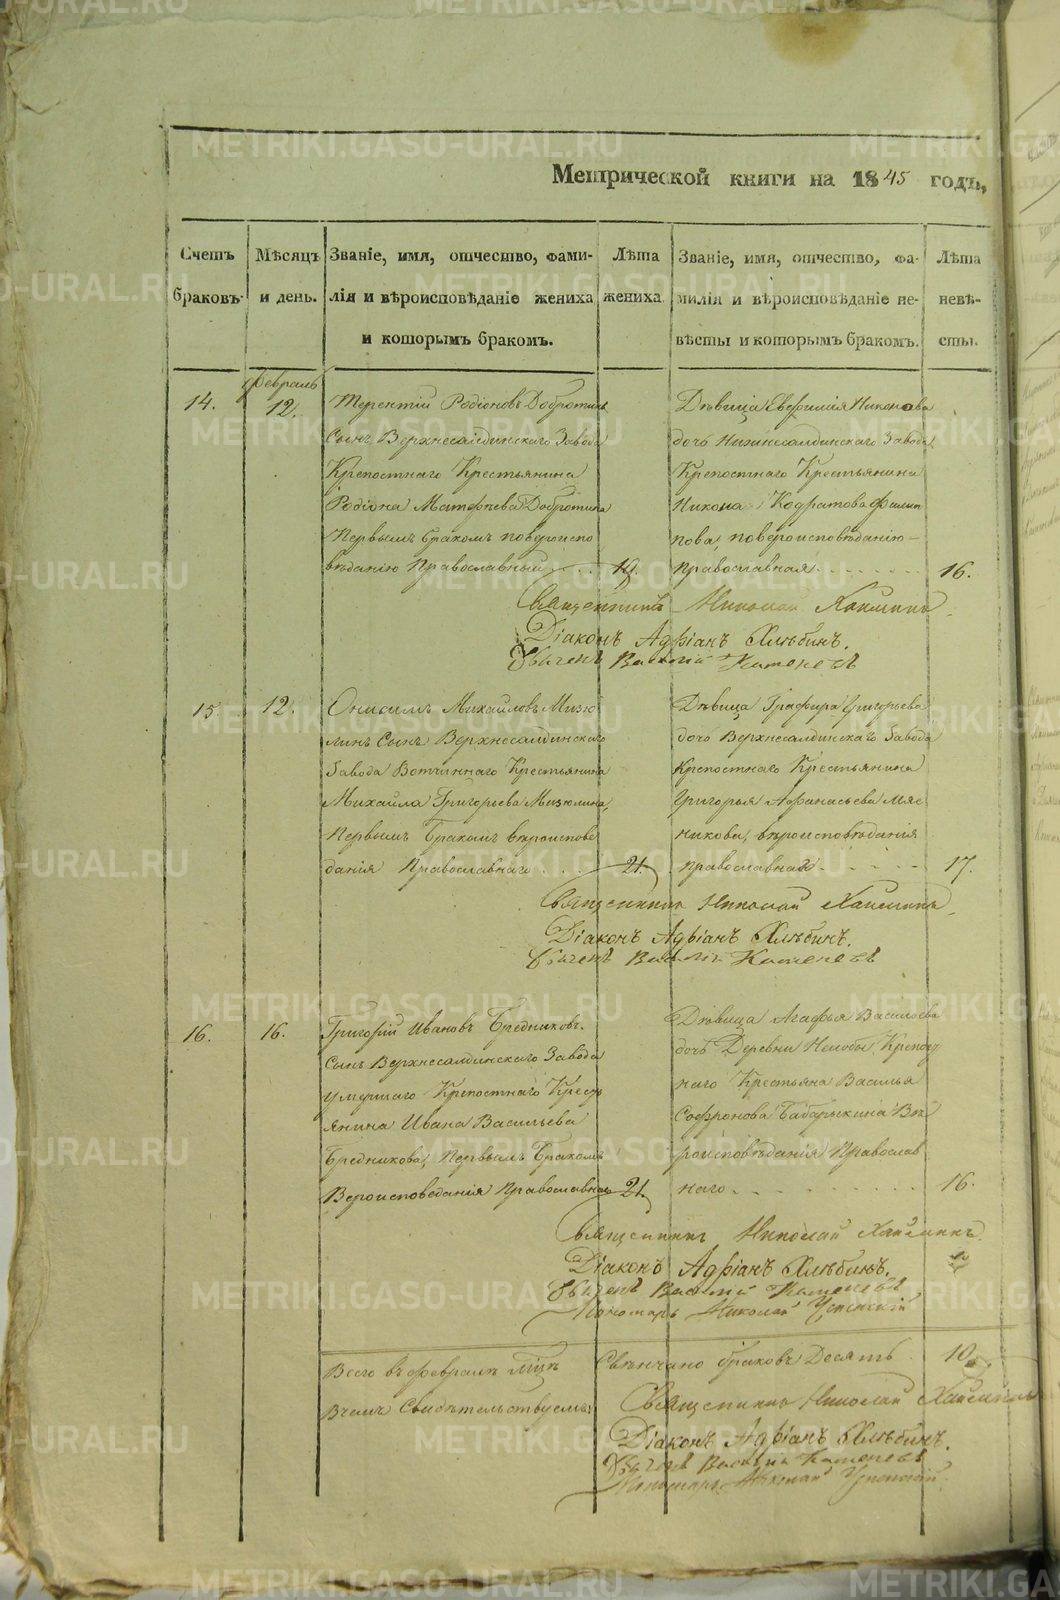 Метрической книги на 1845 годъ,
Счетъ браковъ.
Мѣсяцъ и день.
Званіе, имя, отчество, фами-
лія и вѣроисповѣданіе жениха
и которымъ бракомъ.
Лѣта жениха.
Званіе, имя, отчество, фа-
милія и вѣроисповѣданіе не-
вѣсты и которымъ бракомъ.
Лѣта
невѣ-
сты.
14.
Февраль
12.
Терентій Родіоновъ Добротинъ
Сынъ Верхнесалдинскаго Завода
Крепостнаго Крестьянина
Родіона Матфѣева Добротина
Первымъ бракомъ повѣроиспо
вѣданію Православный
19.
Дѣвица Евфимія Никонова
дочь Нижнесалдинскаго Завода
Крепостнаго Крестьянина
Никона Кодратова Филип
пова, повѣроисповѣданію
православная
16.
Священникъ Николай Хапилинъ
Діаконъ Адріанъ Хлѣбинъ.
Василій Каменевъ
15.
12.
Онисимъ Михайловъ Мизю
линъ Сынъ Верхнесалдинскаго
Завода Вотчиннаго Крестьянина
Михайла Григорьева Мизюлина,
Первымъ Бракомъ вѣроиспове
данія Православнаго
21.
Дѣвица Глафира Григорьева
дочь Верхнесалдинскаго Завода
Крепостнаго Крестьянина
Григорья Афанасьева Мяс
никова, вѣроисповѣданія
православнаго
17.
Священникъ Николай Хапилинъ
Діаконъ Адріанъ Хлѣбинъ.
Василій Каменевъ
16.
16.
Григорій Ивановъ Бредниковъ.
Сынъ Верхнесалдинскаго Завода
умершаго Крепостнаго Кресть
янина Ивана Васильева
Бредникова, Первымъ Бракомъ
Вероисповеданія Православнаго
21.
Дѣвица Агафья Васильева
дочь Деревни Нелобы Крепост
наго Крестьяна Василья
Софронова Бабарыкина Вѣ
роисповѣданія Православ
наго
16.
Священникъ Николай Хапилинъ
Діаконъ Адріанъ Хлѣбинъ.
Василій Каменевъ
Пономарь Николай Успенскій
Всего въ февралѣ мцѣ Свѣнчано браковъ Десять 10.
Вчемъ Свидѣтельствуемъ:
Священникъ Николай Хапилинъ
Діаконъ Адріанъ Хлѣбинъ.
Василій Каменевъ
Пономарь Николай Успенскій
METRIKI.GASO-URAL.RU